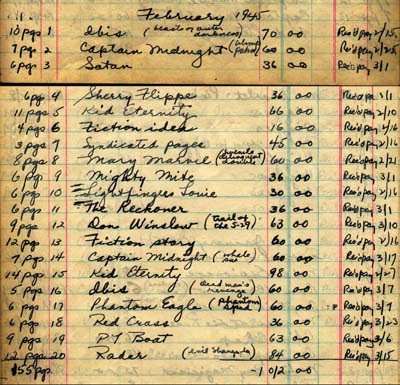 February 1945
10 pgs 1 Ibis (beast of outer darkness) 70 00 Rec'd pay 2/15
7 pgs 2 Captain Midnight (blood) 60 00 Rec'd pay 2/25
6 pgs 3 Satan 36 00 Rec'd pay 3/1
6 pgs 4 Sherry Flippe 36 00 Rec'd pay 3/1
11 pgs 5 Kid Eternity 66 00 Rec'd pay 2/10
4 pgs 6 Fiction idea 16 00 Rec'd pay 2/16
3 pgs 7 Syndicated pages 45 00 Rec'd pay 2/16
8 pgs 8 Mary Marvel (juvenile delinquent) 60 00 Rec'd pay 2/21
6 pgs 9 Mighty Mite 36 00 Rec'd pay 3/1
6 pgs 10 Lightfinger Louie 30 00 Rec'd pay 2/16
6 pgs 11 The Reckoner 36 00 Rec'd pay 3/1
9 pgs 12 Don Winslow (trail of the S-29) 63 00 Rec'd pay 3/10
12 pgs 13 Fiction story 60 00 Rec'd pay 2/16
7 pgs 14 Captain Midnight (whale) 60 00 Rec'd pay 3/17
14 pgs 15 Kid Eternity 98 00 Rec'd pay 2/27
5 pgs 16 Ibis (Dead man's revenge) 60 00 Rec'd pay 3/7
6 pgs 17 Phantom Eagle (phantom) 60 00 Rec'd pay 3/7
6 pgs 18 Red Cross 36 00 Rec'd pay 3/23
9 pgs 19 PT Boat 63 00 Rec'd pay 3/6
12 pgs 20 Radar (evil) 84 00 Rec'd pay 3/15
155 pgs 1 012 00